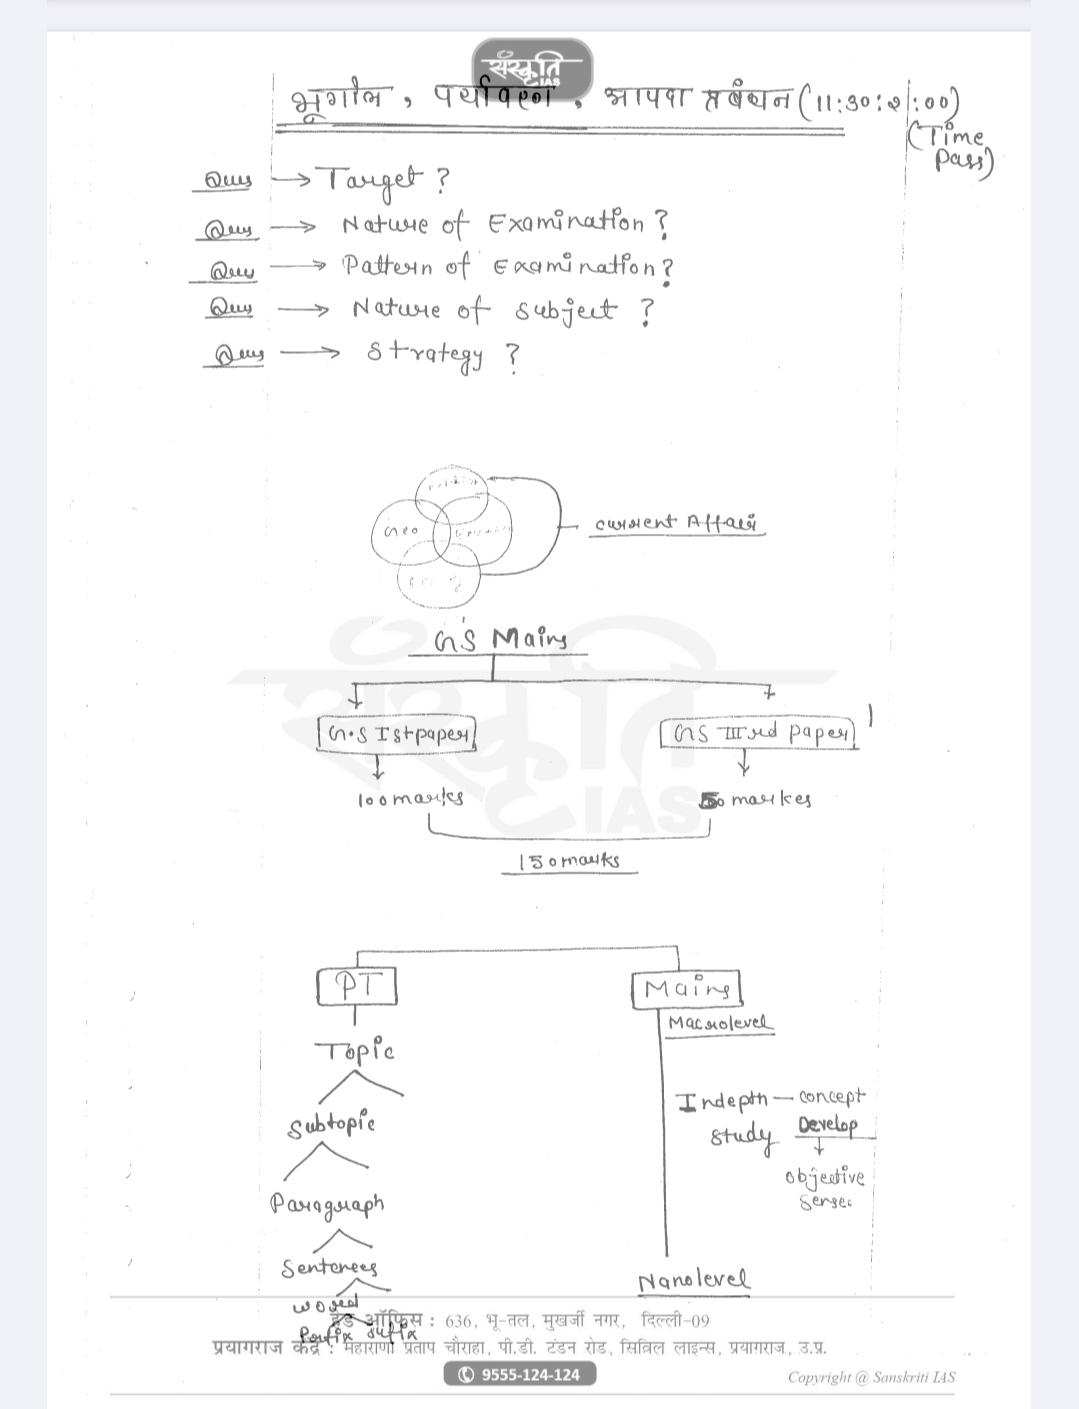 संस्कृति
IAS
भूगोल, पर्यावरण, आपदा प्रबंधन (11:30:21:00)
(Time Pass)
Ques → Target ?
Ques → Nature of Examination?
Ques → Pattern of Examination?
Ques → Nature of subject ?
Ques → Strategy ?
Geo
Current Affair
GS Mains
G.S Ist paper
GS IIIrd paper
100 marks
50 markes
150 marks
संस्कृति
IAS
PT
Mains
Macrolevel
Topic
Indepth — concept
study Develop
Subtopic
objective
sense
Paragraph
Sentences
Nanolevel
word
हेड ऑफिस : 636, भू-तल, मुखर्जी नगर, दिल्ली-09
Prefix suffix
प्रयागराज केंद्र : महाराणा प्रताप चौराहा, पी.डी. टंडन रोड, सिविल लाइन्स, प्रयागराज, उ.प्र.
9555-124-124
Copyright @ Sanskriti IAS